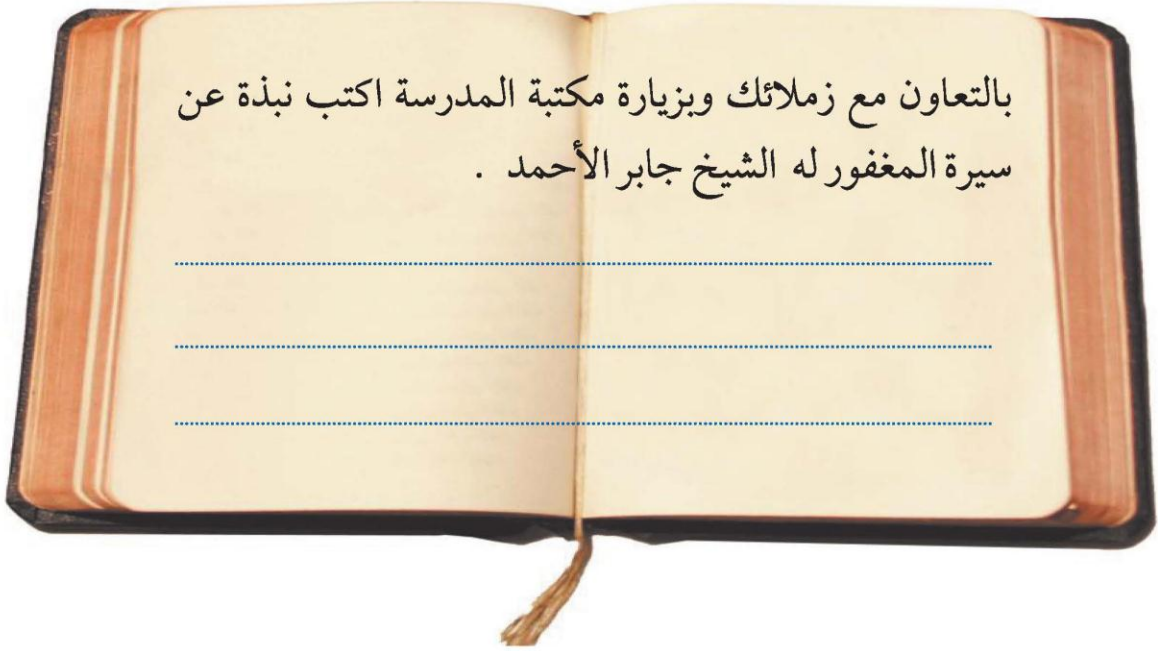 بالتعاون مع زملائك وبزيارة مكتبة المدرسة اكتب نبذة عن
سيرة المغفور له الشيخ جابر الأحمد .